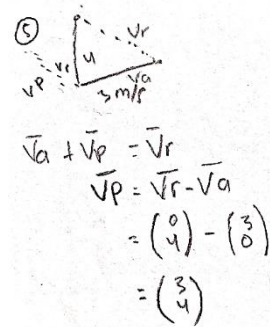 ⑤
Vr
Vr
4
Va
VP
3 m/s
V̄a + V̄p = V̄r
V̄P = V̄r - V̄a
= (0 4) - (3 0)
= (3 4)